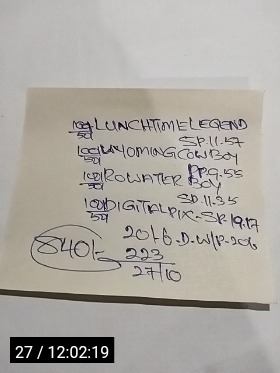 100/50 LUNCHTIME LEGEND
SP.11.57
100/50 WYOMING COWBOY
PP.9.55
100/50 ROWATER BOY
SP.11.35
100/50 DIGITAL PIX-SR.19.17
2016.D.W/P-206
840/-
223
27/10
27 / 12:02:19